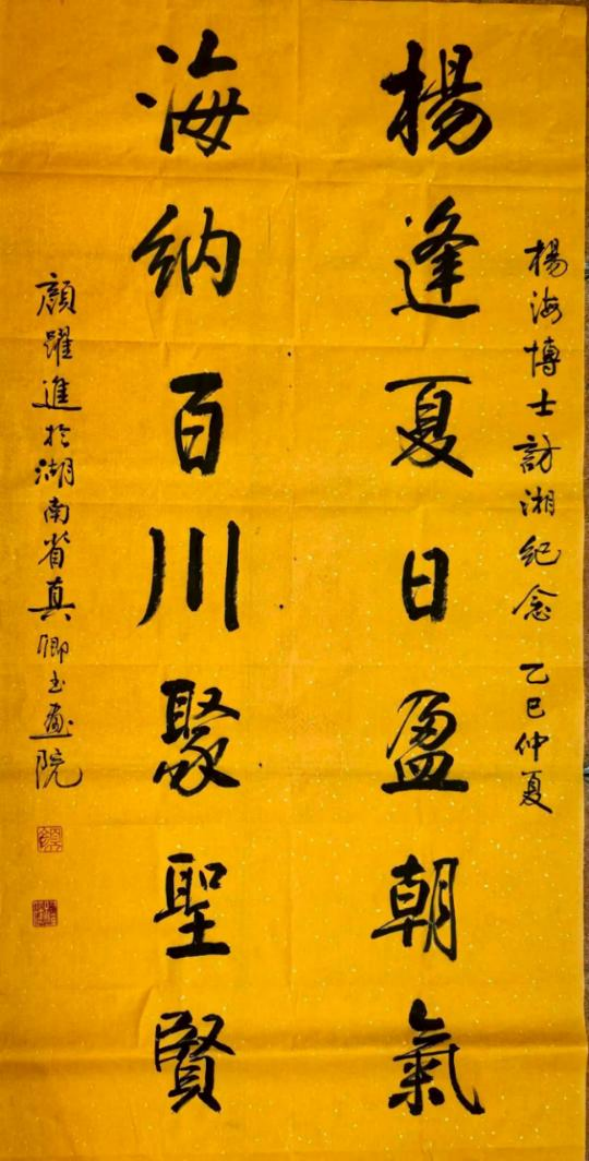 楊海博士訪湘紀念 乙巳仲夏
楊逢夏日盈朝氣
海納百川聚聖賢
顏躍進於湖南省真卿书畫院